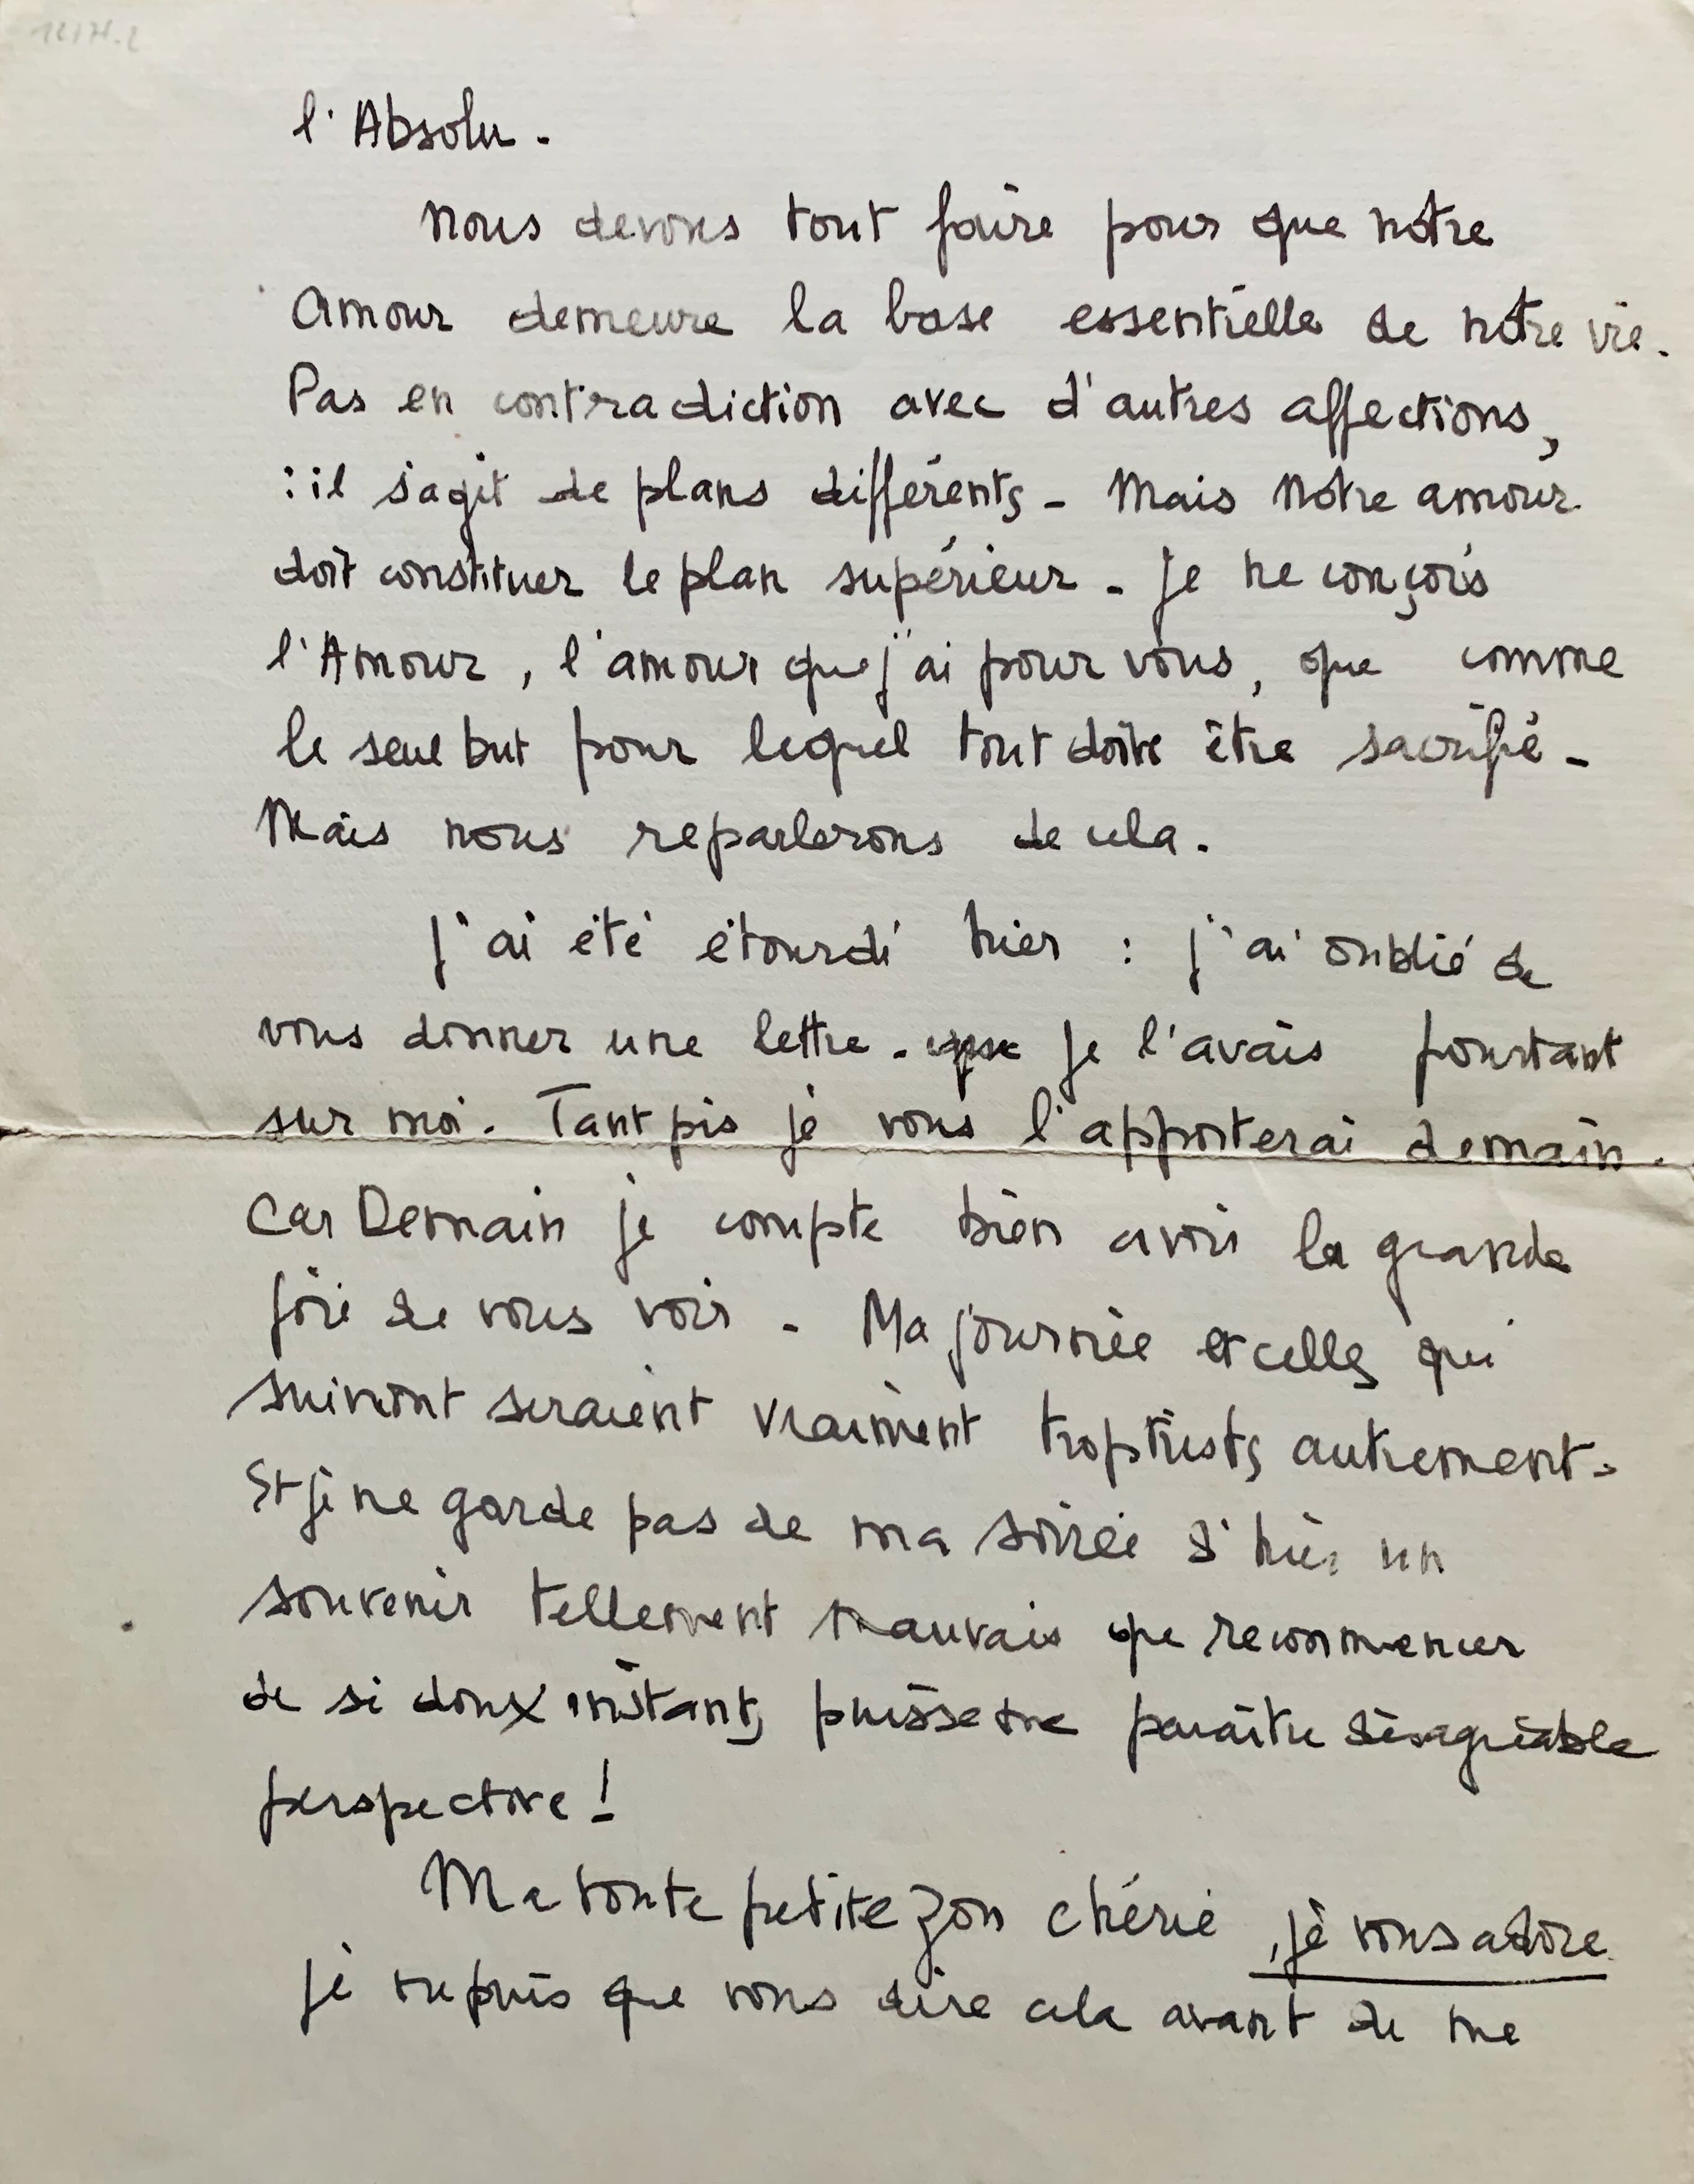 l'Absolu.
Nous devons tout faire pour que notre
Amour demeure la base essentielle de notre vie.
Pas en contradiction avec d'autres affections,
: il s'agit de plans différents - Mais notre amour
doit constituer le plan supérieur - Je ne conçois
l'Amour, l'amour que j'ai pour vous, que comme
le seul but pour lequel tout doit être sacrifié -
Mais nous reparlerons de cela.
J'ai été étourdi hier : j'ai oublié de
vous donner une lettre - je l'avais pourtant
sur moi. Tant pis je vous l'apporterai demain.
Car Demain je compte bien avoir la grande
joie de vous voir - Ma journée et celles qui
suivront seraient vraiment trop tristes autrement -
Et je ne garde pas de ma soirée d'hier un
souvenir tellement mauvais que recommencer
de si doux instants puisse me paraître désagréable
perspective !
Ma toute petite Zon chérie, je vous adore
je ne puis que vous dire cela avant de me